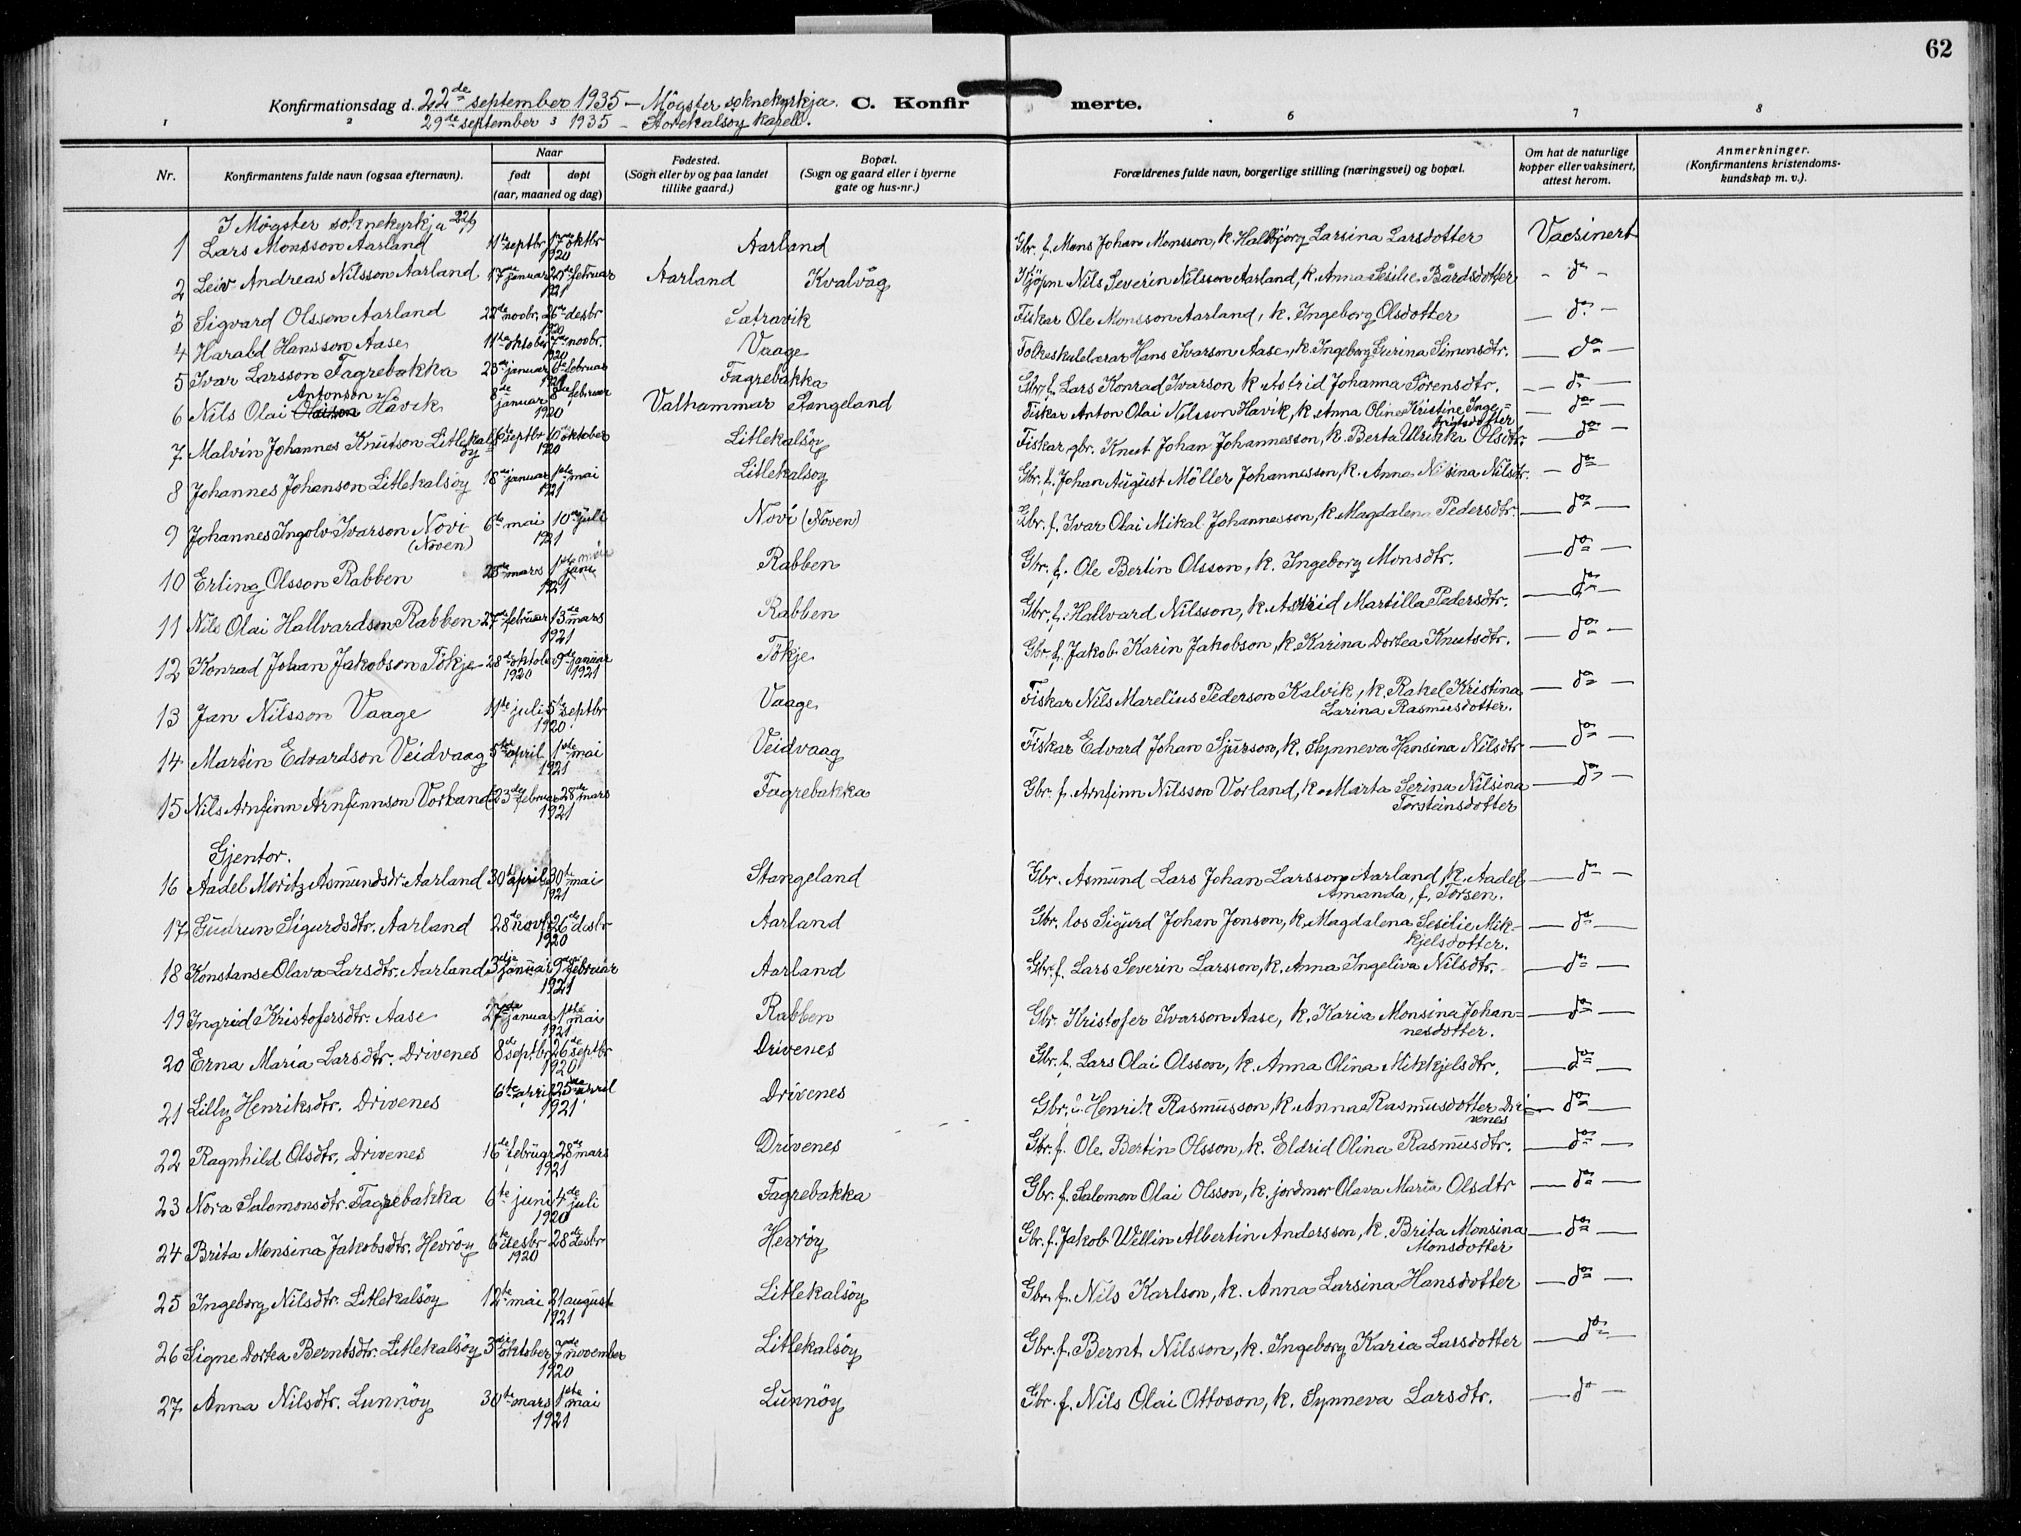 62
Konfirmationsdag d. 22de september 1935 – Møgster soknekyrkja. C. Konfirmerte.
29de september 1935 – Storekalsøy kapell.
1 2 3 6 7 8
Nr. Konfirmantens fulde navn (ogsaa efternavn). Naar født døpt (aar, maaned og dag) Fødested. (Sogn eller by og paa landet tillike gaard.) Bopæl. (Sogn og gaard eller i byerne gate og hus-nr.) Forældrenes fulde navn, borgerlige stilling (næringsvei) og bopæl. Om hat de naturlige kopper eller vaksinert, attest herom. Anmerkninger. (Konfirmantens kristendomskundskap m. v.).
I Møgster soknekyrkja 22/9
1 Lars Monsson Aarland 11te septbr 17de oktbr 1920 Aarland Gbr. f. Mons Johan Monsson, k. Halbjørg Larsina Larsdotter Vacsinert
2 Leiv Andreas Nilsson Aarland 17de januar 20de februar 1921 Aarland Kvalvåg Kjøpm Nils Severin Nilsson Aarland, k. Anna Sesilie Bårdsdotter - do -
3 Sigvard Olsson Aarland 22de novbr. 26de desbr 1920 Sætravik Fiskar Ole Monsson Aarland, k. Ingeborg Olsdotter — do —
4 Harald Hansson Aase 11te oktober 7de novbr. 1920 Vaage Folkeskulelærar Hans Ivarson Aase, k. Ingeborg Surina Simonsdtr. — do —
5 Ivar Larsson Fagrebakka 23de januar 6te februar 1921 Fagrebakka Gbr. f. Lars Konrad Ivarson k Astrid Johanna Sørensdtr. — do —
6 Nils Olai Olaison Antonson Håvik 8de januar 8de februar 1920 Valhammar Stangeland Fiskar Anton Olai Nilsson Havik, k. Anna Oline Kristine Inge=
brigtsdotter — do —
7 Malvin Johannes Knutson Litlekalsøy 16de septbr 10de oktober 1920 Litlekalsøy Fiskar, gbr. Knut Johan Johannesson, k. Berta Ulrikka Olsdtr. — do —
8 Johannes Johanson Litlekalsøy 18de januar 1ste mai 1921 Litlekalsøy Gbr. f. Johan August Møller Johannesson, k. Anna Nilsina Nilsdtr. — do —
9 Johannes Ingolv Ivarson Novi (Noven) 6te mai 10de juli 1921 Novi (Noven) Gbr. f. Ivar Olai Mikal Johannesson, k. Magdalena Pedersdtr. — do —
10 Erling Olsson Rabben mars 1ste mai juni 1921 Rabben Gbr. f. Ole Bertin Olsson, k. Ingeborg Monsdtr. — do —
11 Nils Olai Hallvardson Rabben 27de februar 13de mars 1921 Rabben Gbr. f. Hallvard Nilsson, k. Astrid Martilla Pedersdtr. — do —
12 Konrad Johan Jakobson Tökje 28de oktob. 1920 9de januar 1921 Tökje Gbr. f. Jakob Karin Jakobson, k. Karina Dortea Knutsdtr. — do —
13 Jan Nilsson Vaage 11te juli 5te septbr 1920 Vaage Fiskar Nils Marelius Pederson Kalvik, k. Rakel Kristina
Larina Rasmusdotter. — do —
14 Martin Edvardson Veidvaag 5te april 1ste mai 1921 Veidvaag Fiskar Edvard Johan Sjurson, k. Synneva Hansina Nilsdtr — do —
15 Nils Arnfinn Arnfinnson Vorland 23de februar 28de mars 1921 Fagrebakka Gbr. f. Arnfinn Nilsson Vorland, k. Marta Serina Nilsina
Torsteinsdotter — do —
Gjentor.
16 Aadel Moritz Asmundsdtr. Aarland 30te april 30te mai 1921 Stangeland Gbr. Asmund Lars Johan Larsson Aarland, k. Aadel
Amanda, f. Torsen. — do —
17 Gudrun Sigurdsdtr. Aarland 28de novb 26de desbr 1920 Aarland Gbr. los Sigurd Johan Jonson, k. Magdalena Sesilie Mik-
kjelsdotter. — do —
18 Konstanse Olava Larsdtr. Aarland 3dje januar 9de februar 1921 Aarland Gbr. f. Lars Severin Larsson, k. Anna Ingeliva Nilsdtr. — do —
19 Ingrid Kristofersdtr. Aase 27de januar 1ste mai 1921 Rabben Gbr. Kristofer Ivarson Aase, k. Karia Monsina Johan=
nesdotter. — do —
20 Erna Maria Larsdtr. Drivenes 8de septbr 26de septbr 1920 Drivenes Gbr. f. Lars Olai Olsson, k. Anna Olina Mikkjelsdtr. — do —
21 Lilly Henriksdtr. Drivenes 6te april 25de april 1921 Drivenes Gbr. f. Henrik Rasmusson, k. Anna Rasmusdotter Dri
venes — do —
22 Ragnhild Olsdtr. Drivenes 16de februar 28de mars 1921 Drivenes Gbr. f. Ole Bertin Olsson, k. Eldrid Olina Rasmusdtr. — do —
23 Nora Salomonsdtr. Fagrebakka 6te juni 4de juli 1920 Fagrebakka Gbr. f. Salomon Olai Olsson, k. jordmor Olava Maria Olsdtr — do —
24 Brita Monsina Jakobsdtr. Hevrøy 6te desbr 28de desbr 1920 Hevrøy Gbr. f. Jakob Wellin Albertin Andersson, k. Brita Monsina
Monsdotter — do —
25 Ingeborg Nilsdtr. Litlekalsöy 12te mai 21 august 1921 Litlekalsöy Gbr. f. Nils Karlson, k. Anna Larsina Hansdotter — do —
26 Signe Dortea Berntsdtr. Litlekalsöy 3die oktober 7de november 1920 Litlekalsöy Gbr. f. Bernt Nilsson, k. Ingeborg Karia Larsdotter — do —
27 Anna Nilsdtr. Lunnöy 30te mars 1ste mai 1921 Lunnöy Gbr. f. Nils Olai Ottoson, k. Synneva Larsdtr. — do —